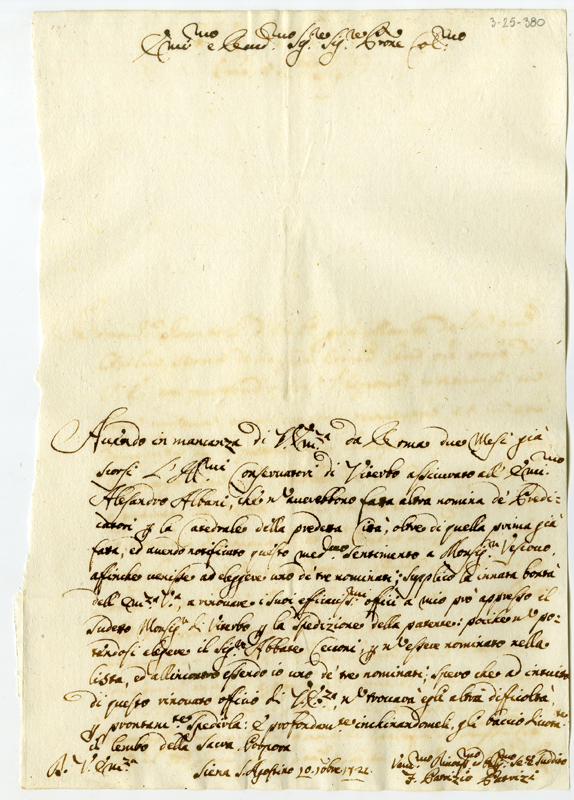 3-25-380
Em.mo e Rend.mo Sig.re Sig.re Prone Col.mo
Avendo in mancanza di V. Em.za da Roma due Mesi già
scorsi l'Ill.mi Conservatori di Viterbo assicurato all' Em.mo
Alesandro Albani, che n averebbono fatta altra nomina de Predi-
catori p la Catedrale della predetta Cità, oltre di quella prima già
fatta, ed avendo notificato questo med.mo Sentimento a Monsig.r Vescovo,
affinche venisse ad elegere uno de tre nominati; Supplico la innata bontà
dell' Em.za V.a, a rinovare i suoi efficaciss.mi offici a mio prò appresso il
Sudetto Monsig.r di Viterbo p la Spedizione della patente: poiche n po-
tendosi elegere il Sig.r Abbate Ceconi, p n essere nominato nella
lista, ed all'incontro essendo io uno de tre nominati; spero che ad intuito
di questo rinovato officio di V. Em.za n trovarà egli altra difficoltà
p prontam.te Spedirla: e profondam.te inchinandomeli, gli bacio divota.te
il lembo della Sacra Porpora
D. V. Em.za
Siena S. Agostino 10. 1721.
Um.mo Servo
F. Patrizio Patrizi